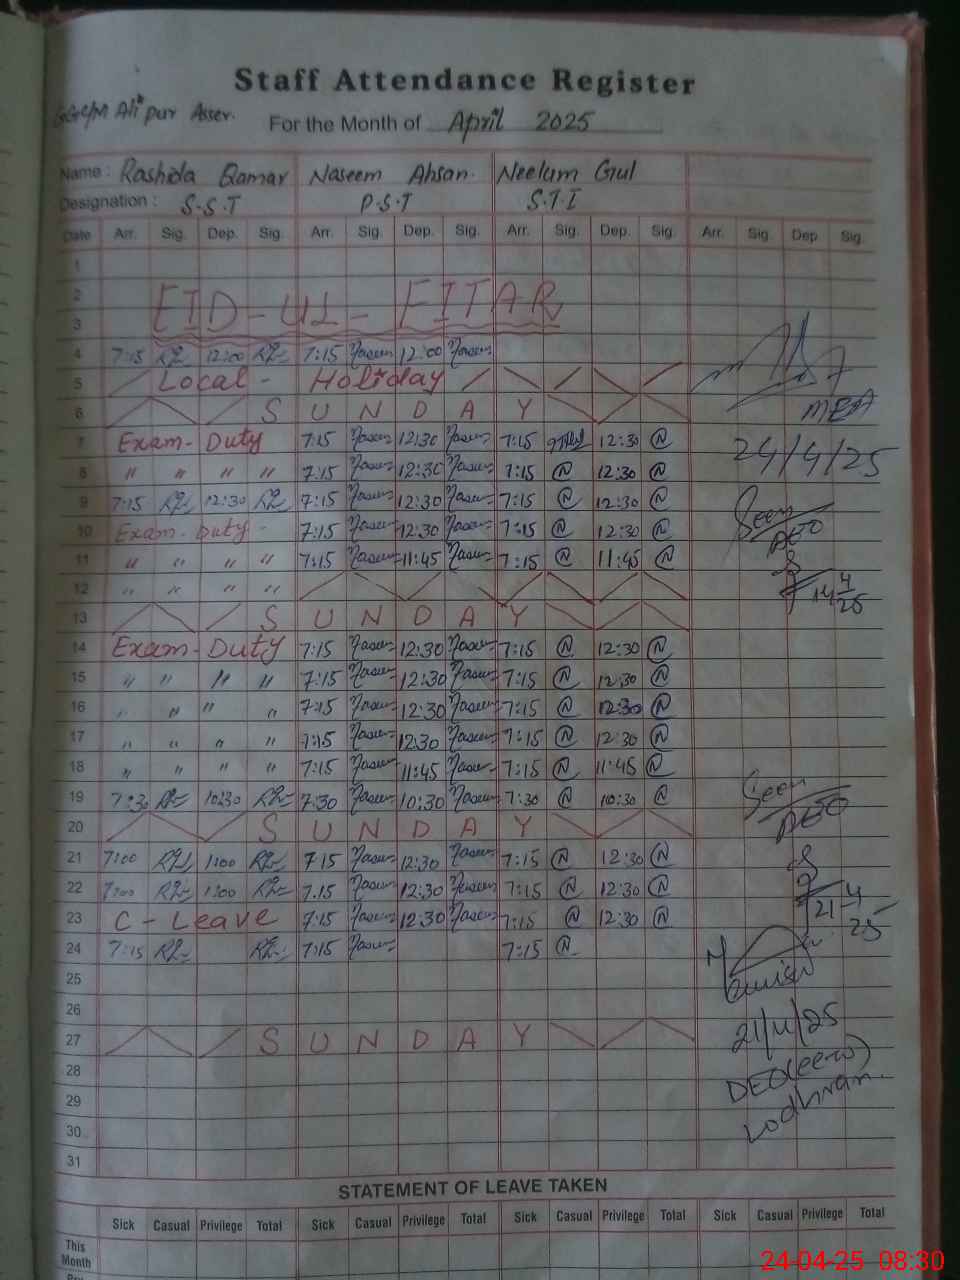 Staff Attendance Register
For the Month of April 2025
Name : Rashida Qamar Naseem Ahsan. Neelum Gul
Designation : S.S.T P.S.T S.T.I
Date Arr. Sig. Dep. Sig. Arr. Sig. Dep. Sig. Arr. Sig. Dep. Sig. Arr. Sig. Dep Sig.
1
2 EID-UL-FITAR
3
4 7:15 12:00 7:15 Naseem 12:00 Naseem
5 Local - Holiday
6 SUNDAY
MEA
7 Exam- Duty 7:15 Naseem 12:30 Naseem 7:15 12:30 N
24/4/25
8 " " " " 7:15 Naseem 12:30 Naseem 7:15 N 12:30 N
9 7:15 12:30 7:15 Naseem 12:30 Naseem 7:15 N 12:30 N
Seen
10 Exam- Duty - 7:15 Naseem 12:30 Naseem 7:15 N 12:30 N
11 " " " " 7:15 Naseem 11:45 Naseem 7:15 N 11:45 N
12 " " " "
14 4/25
13 SUNDAY
14 Exam- Duty 7:15 Naseem 12:30 Naseem 7:15 N 12:30 N
15 " " " " 7:15 Naseem 12:30 Naseem 7:15 N 12:30 N
16 " " " " 7:15 Naseem 12:30 Naseem 7:15 N 12:30 N
17 " " " " 7:15 Naseem 12:30 Naseem 7:15 N 12:30 N
18 " " " " 7:15 Naseem 11:45 Naseem 7:15 N 11:45 N
19 7:30 10:30 7:30 Naseem 10:30 Naseem 7:30 N 10:30
Seen
20 SUNDAY
21 7:00 1:00 7:15 Naseem 12:30 Naseem 7:15 N 12:30 N
22 7:00 1:00 7.15 Naseem 12:30 Naseem 7:15 N 12:30 N
21 4
23 C - Leave 7:15 Naseem 12:30 Naseem 7:15 N 12:30 N
25
24 7:15 7:15 Naseem 7:15 N
25
26
27 SUNDAY
21/4/25
28
DEO(ee-w)
29
Lodhran.
30
31
STATEMENT OF LEAVE TAKEN
Sick Casual Privilege Total Sick Casual Privilege Total Sick Casual Privilege Total Sick Casual Privilege Total
This
Month
24-04-25 08:30